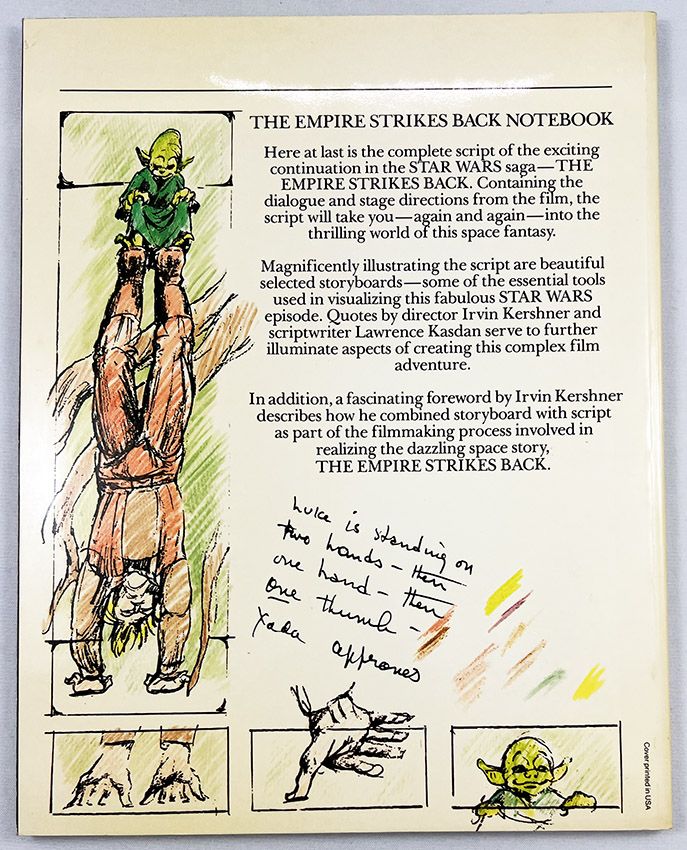 THE EMPIRE STRIKES BACK NOTEBOOK
Here at last is the complete script of the exciting
continuation in the STAR WARS saga—THE
EMPIRE STRIKES BACK. Containing the
dialogue and stage directions from the film, the
script will take you—again and again—into the
thrilling world of this space fantasy.
Magnificently illustrating the script are beautiful
selected storyboards—some of the essential tools
used in visualizing this fabulous STAR WARS
episode. Quotes by director Irvin Kershner and
scriptwriter Lawrence Kasdan serve to further
illuminate aspects of creating this complex film
adventure.
In addition, a fascinating foreword by Irvin Kershner
describes how he combined storyboard with script
as part of the filmmaking process involved in
realizing the dazzling space story,
THE EMPIRE STRIKES BACK.
Luke is standing on
two hands – then
one hand – then
one thumb –
Yoda approves
Cover printed in USA